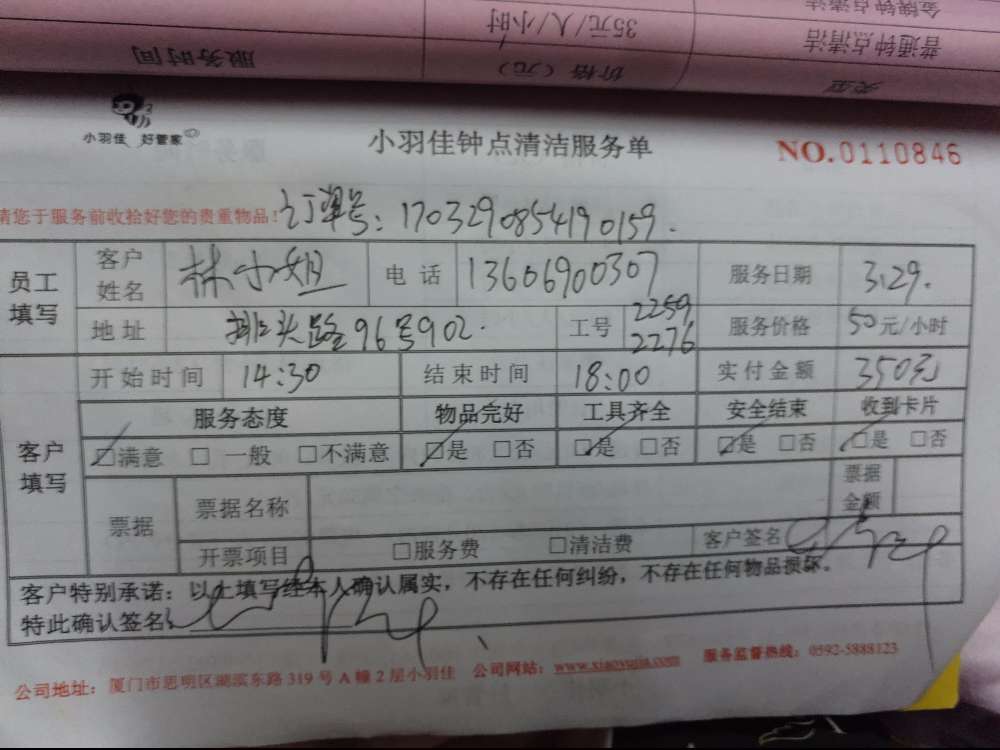 金牌钟点清洁
普通钟点清洁
35元/人/小时
类型
价格（元）
服务时间
小羽佳 好管家
小羽佳钟点清洁服务单
NO.0110846
请您于服务前收拾好您的贵重物品！订单号：1703290854190159.
员工填写 客户姓名 林小姐 电话 13606900307 服务日期 3.29.
地址 排头路96号902. 工号 2259 2276 服务价格 50元/小时
客户填写 开始时间 14:30 结束时间 18:00 实付金额 350元
服务态度 物品完好 工具齐全 安全结束 收到卡片
☑满意 □一般 □不满意 ☑是 □否 ☑是 □否 ☑是 □否 ☑是 □否
票据 票据名称 票据金额
开票项目 □服务费 □清洁费 客户签名
客户特别承诺：以上填写经本人确认属实，不存在任何纠纷，不存在任何物品损坏。
特此确认签名：
公司地址：厦门市思明区湖滨东路319号A幢2层小羽佳 公司网站：www.xiaoyujia.com 服务监督热线：0592-5888123